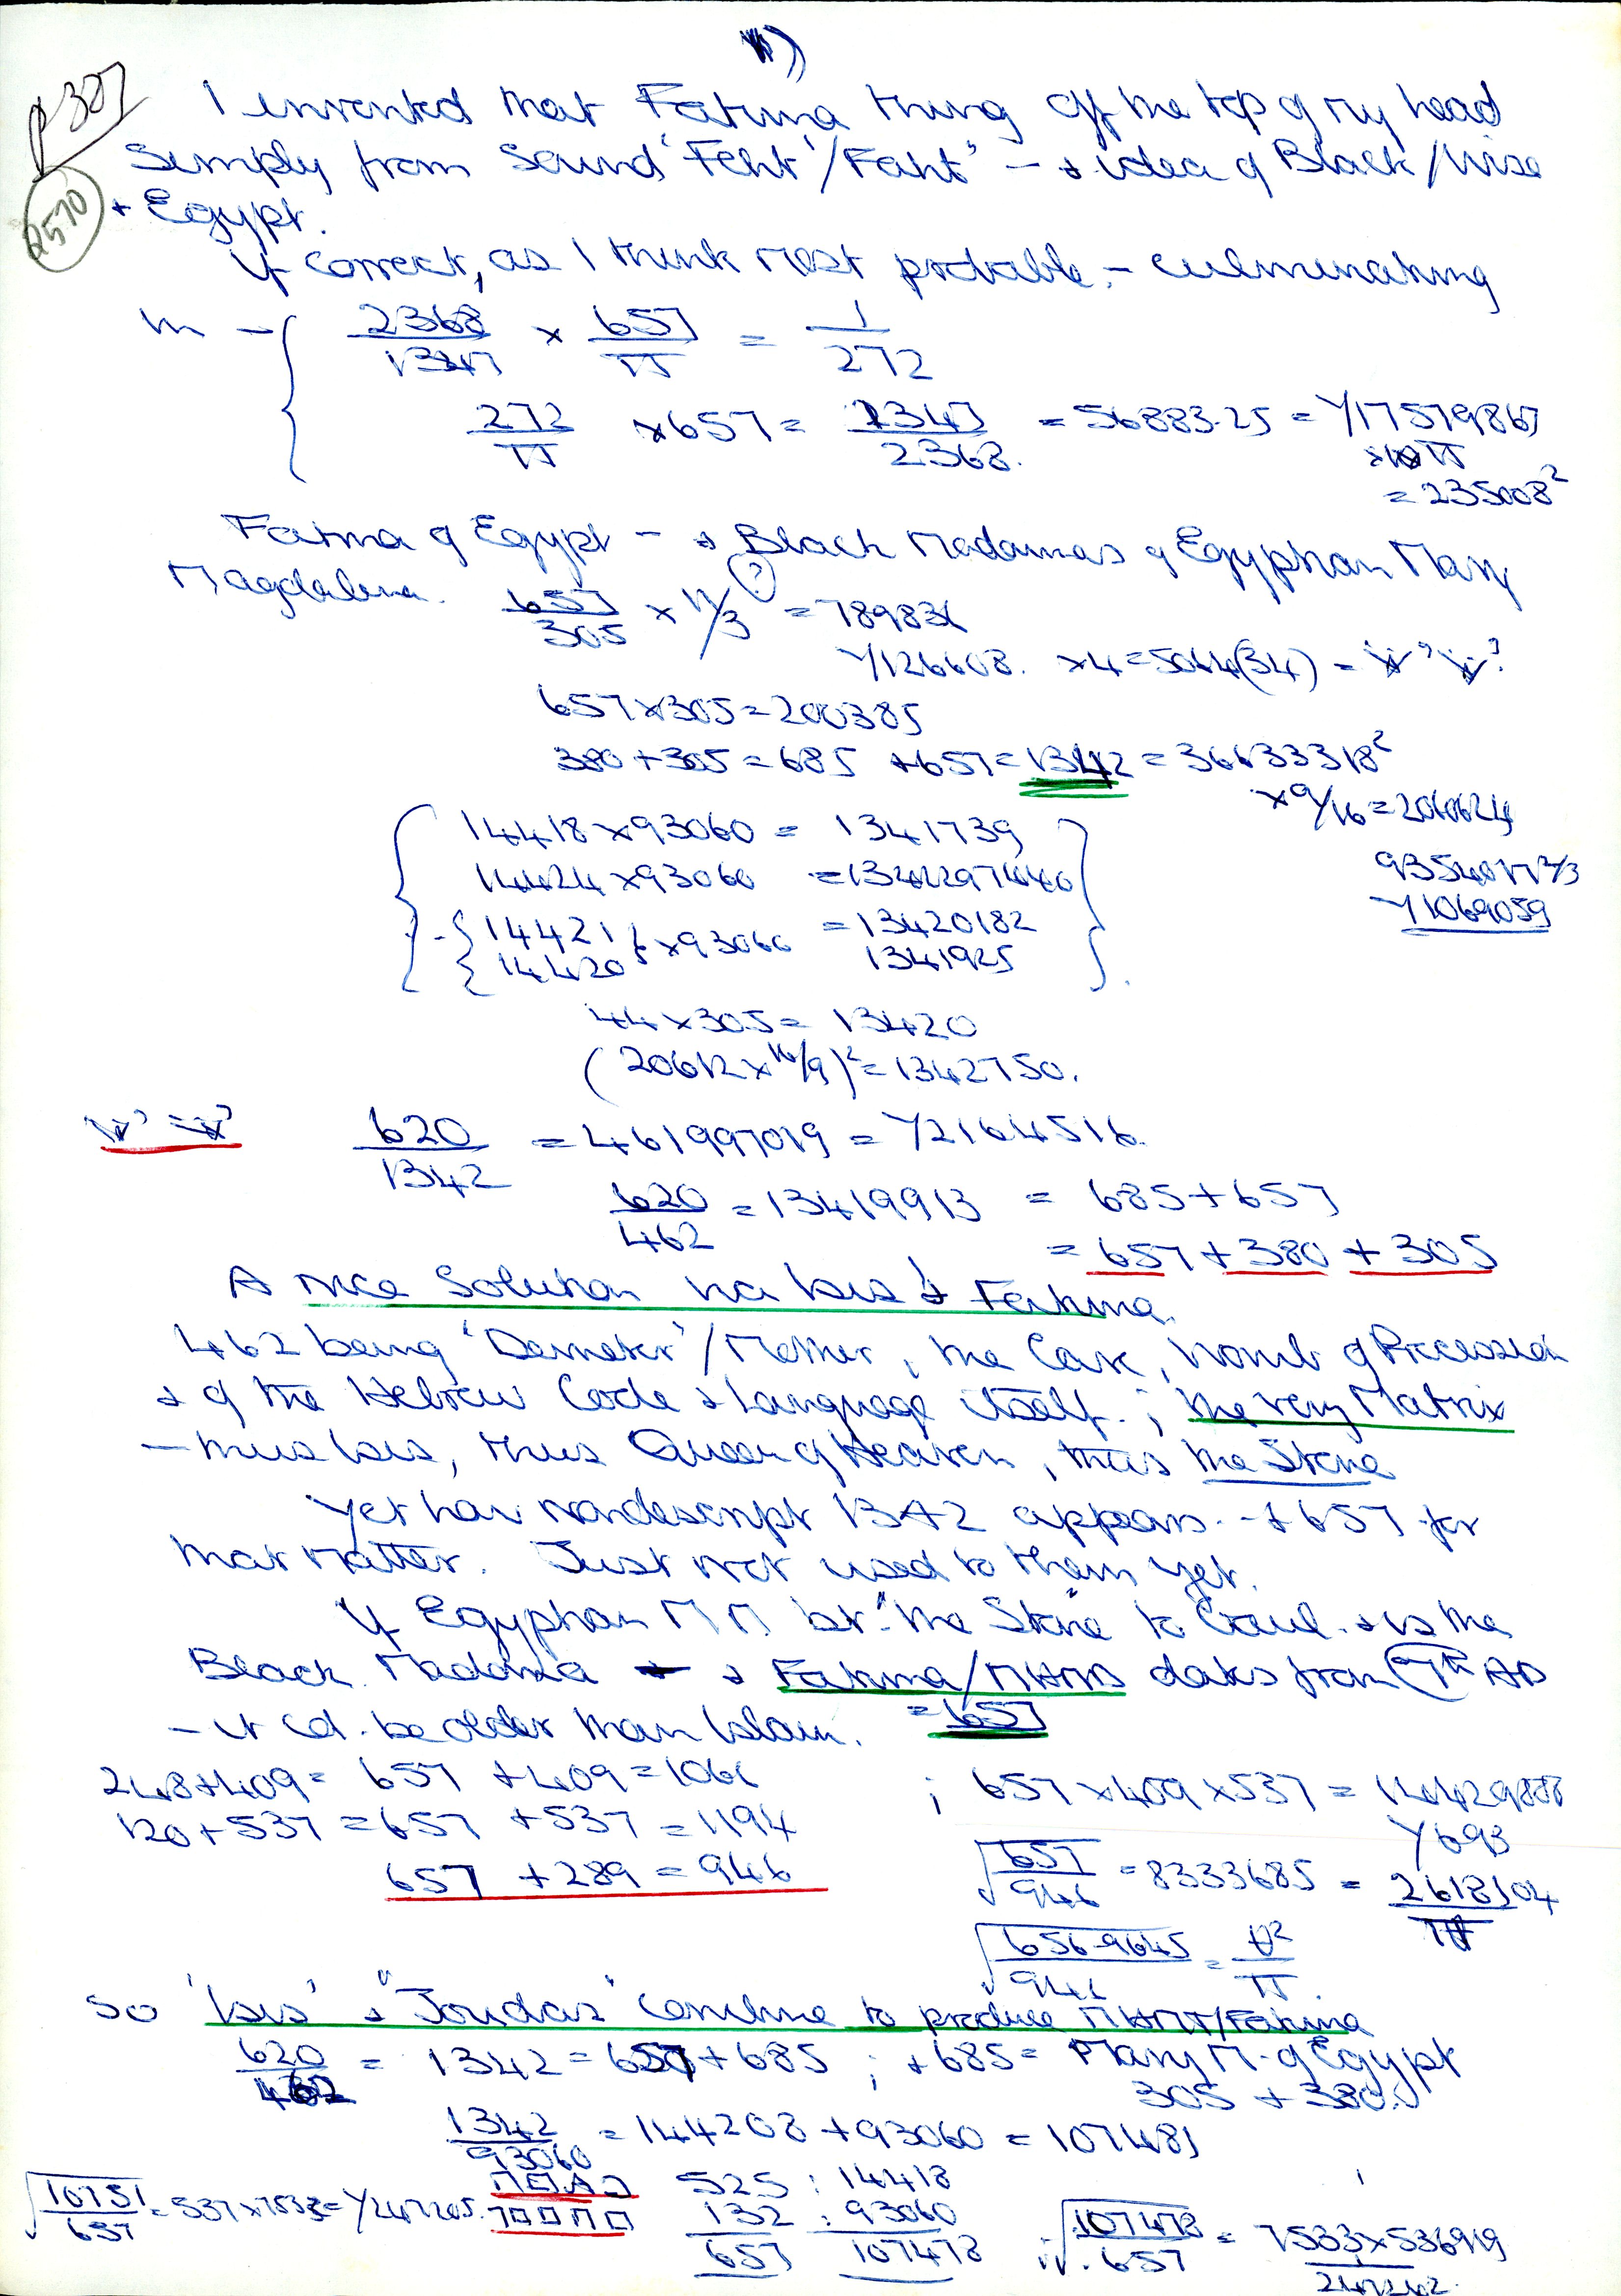 11)
P 307
2570
I invented that Fatima thing off the top of my head
Simply from Sound 'Feht'/Faht" - & idea of Black/Wise
+ Egypt.
If correct, as I think most probable, - culminating
in - 2368/1347 × 657/π = 1/272
272/π × 657 = 1347/2368. = 56883.25 = Y17579867
×10π
= 235008²
Fatima of Egypt - & Black Madonnas of Egyptian Mary
Magdalena. (?)
657/305 × 11/3 = 789836
Y126608. ×4 = 5064(34)
657×305 = 200385
380+305 = 685 +657 = 1342 = 36633318²
×9/16 = 2060624
14418×93060 = 1341739
14424×93060 = 1342297440
14421 } ×93060 = 13420182
14420 1341925
Y1069059
44×305 = 13420
(20612×16/9)² = 1342750.
620/1342 = 461997019 = Y2164516.
620/462 = 13419913 = 685+657
= 657 + 380 + 305
A nice Solution via Isis & Fatima.
462 being 'Demeter'/Mother, the Cave, Womb of Precession
& of the Hebrew Code & Language itself.; the very Matrix
- thus Isis, thus Queen of Heaven, thus the Stone
Yet how nondescript 1342 appears - & 657 for
that matter. Just not used to them yet.
If Egyptian M M bt. "the Stone" to Gaul. & is the
Black Madonna & Fatima/ dates from 7th AD
= 657
- it cd. be older than Islam.
248+409 = 657 +409 = 1066
120+537 = 657 +537 = 1194
657 + 289 = 946
; 657×409×537 = 14429888
Y693
√657/946 = 8333685 = 2618104/π
√656.9645/946 = θ²/π.
So 'Isis' & "Joudas" combine to produce /Fatima
620/462 = 1342 = 657+685 ; & 685 = Mary M. of Egypt
305 + 380.
1342/93060 = 144208 + 93060 = 107481
525 : 14418
132 : 93060
657 107478
√10751/657 = 537×7533 = Y247205.
√107478/657 = 7533×536919
247242.